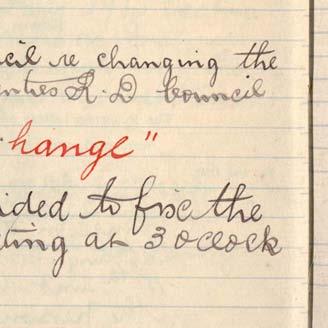 cil re changing the
R. D Council
hange"
ided to fixe the
ting at 3 oclock